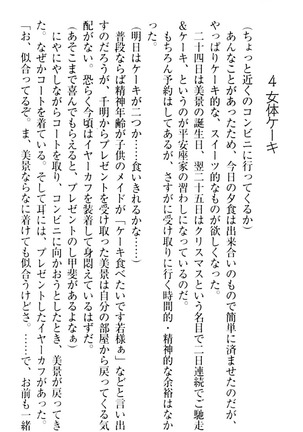 4 女体ケーキ
（ちょっと近くのコンビニに行ってくるか）
あんなことがあったため、今日の夕食は出来合いのもので簡単に済ませたのだが、
やっぱりケーキ的な、スイーツ的なものが欲しくなった。
二十四日は美景の誕生日、翌二十五日はクリスマスという名目で二日連続でご馳走
＆ケーキ、というのが平安座家の習わしになっている。
もちろん予約はしてあるが、さすがに受け取りに行く時間的・精神的な余裕はなか
った。
（明日はケーキが二つか……食いきれるかな……）
普段ならば精神年齢が子供のメイドが「ケーキ食べたいです若様ぁ」などと言い出
すのだろうが、千明からプレゼントを受け取った美景は自分の部屋から戻ってくる気
配がない。恐らく今頃はイヤーカフを装着して身悶えているはずだ。
（あそこまで喜んでもらえると、プレゼントのし甲斐があるよなぁ）
にやにやしながらコートを取り、コンビニに向かおうとしたとき、美景が戻ってき
た。なぜかコートを着ている。そして耳には、プレゼントしたイヤーカフがあった。
「お、似合ってるぞ。ま、美景ならなに着けても似合うけどさ。……で、お前も一緒